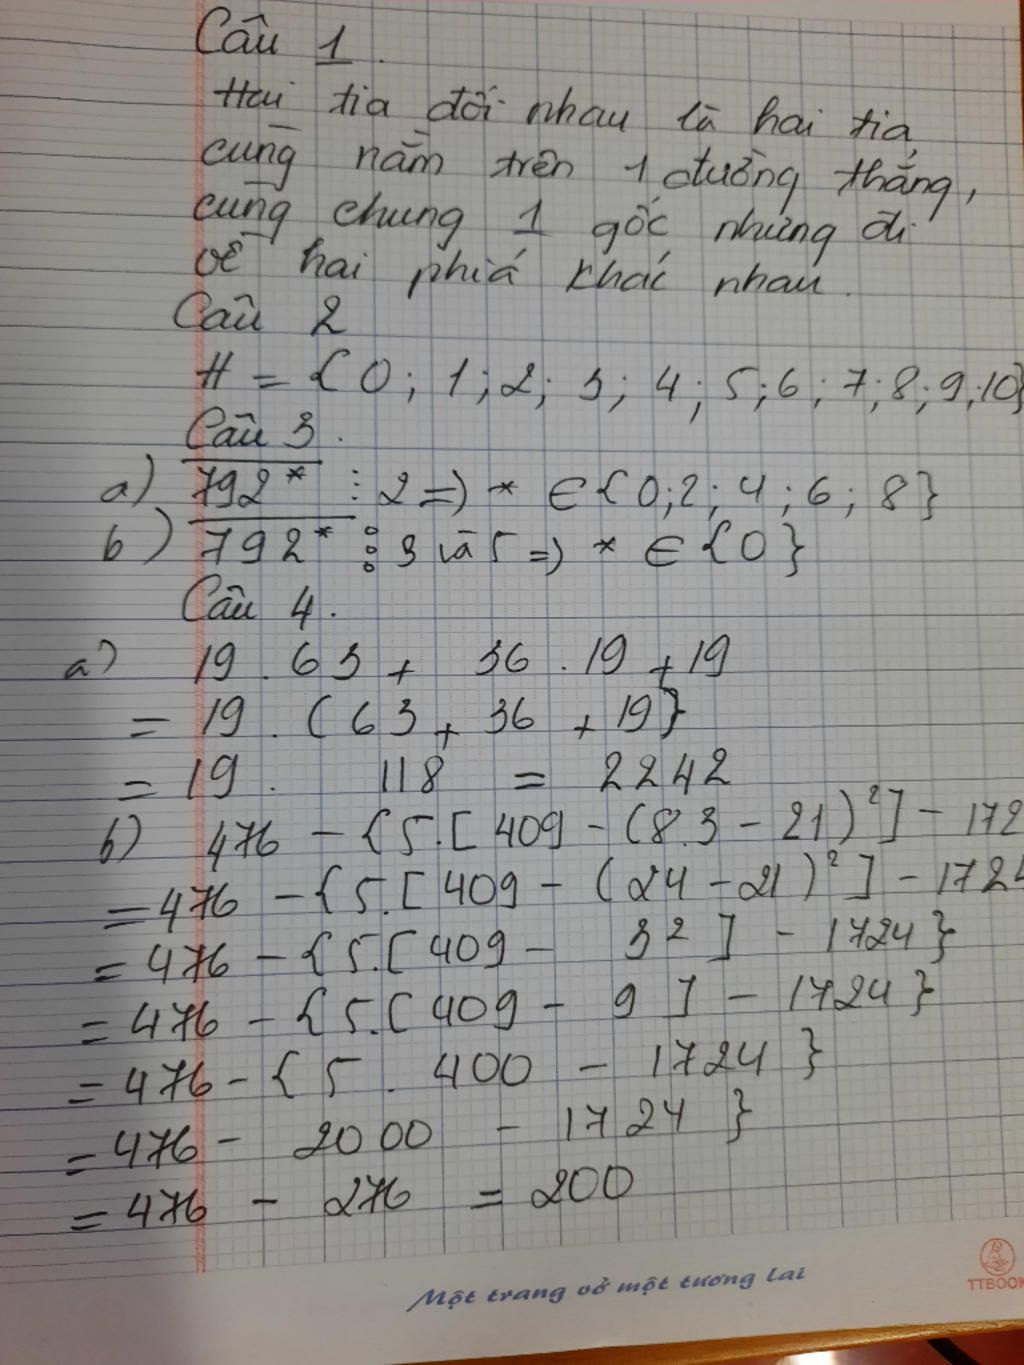 Câu 1.
Hai tia đối nhau là hai tia,
cùng nằm trên 1 đường thẳng,
cùng chung 1 gốc nhưng đi
về hai phiá khác nhau.
Câu 2
H = { 0 ; 1 ; 2 ; 3 ; 4 ; 5 ; 6 ; 7 ; 8 ; 9 ; 10}
Câu 3.
a) 792* ⋮ 2 => * ∈ { 0 ; 2 ; 4 ; 6 ; 8 }
b) 792* ⋮ 3 và 5 => * ∈ { 0 }
Câu 4.
a) 19 . 63 + 36 . 19 + 19
= 19 . ( 63 + 36 + 19 }
= 19 . 118 = 2242
b) 476 - { 5 . [ 409 - (8.3 - 21)² ] - 172
= 476 - { 5 . [ 409 - (24 - 21)² ] - 1724
= 476 - { 5 . [ 409 - 3² ] - 1724 }
= 476 - { 5 . [ 409 - 9 ] - 1724 }
= 476 - { 5 . 400 - 1724 }
= 476 - 2000 - 1724 }
= 476 - 276 = 200
Một trang vở một tương lai
TTBOOK